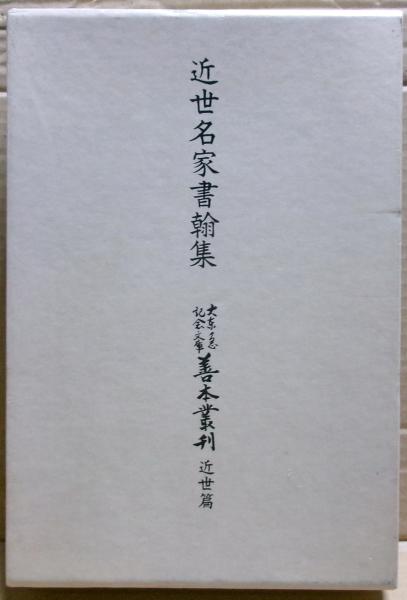 近世名家書翰集
大東急
記念文庫
善本叢刊
近世篇